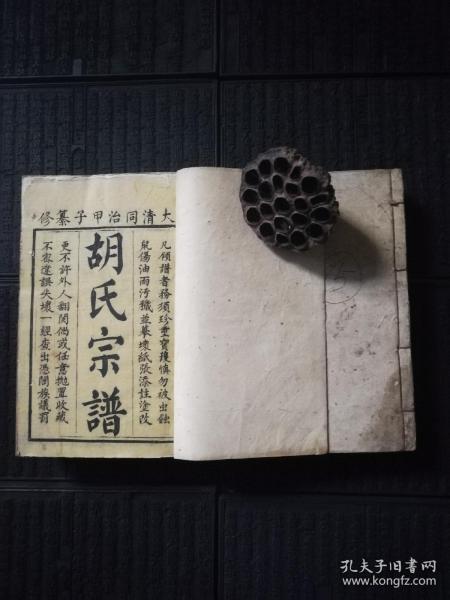 大清同治甲子纂修
凡領譜者務須珍重寶護慎勿被虫蝕
鼠傷油雨污穢並摹壞紙張添註塗改
胡氏宗譜
更不許外人翻閱倘或任意拋置收藏
不密遺誤失壞一經查出憑闔族議罰
孔夫子旧书网
www.kongfz.com